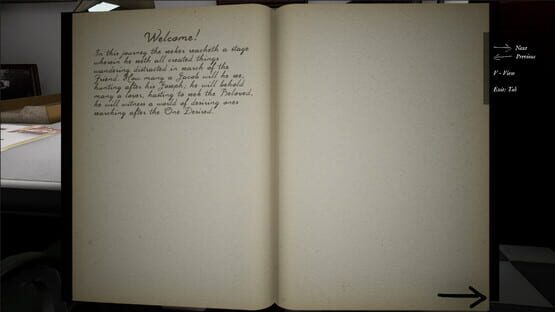 Welcome!
In this journey the seeker reacheth a stage
wherein he seeth all created things
wandering distracted in search of the
Friend. How many a Jacob will he see,
hunting after his Joseph; he will behold
many a lover, hasting to seek the Beloved,
he will witness a world of desiring ones
searching after the One Desired.
Next
Previous
F - View
Exit: Tab